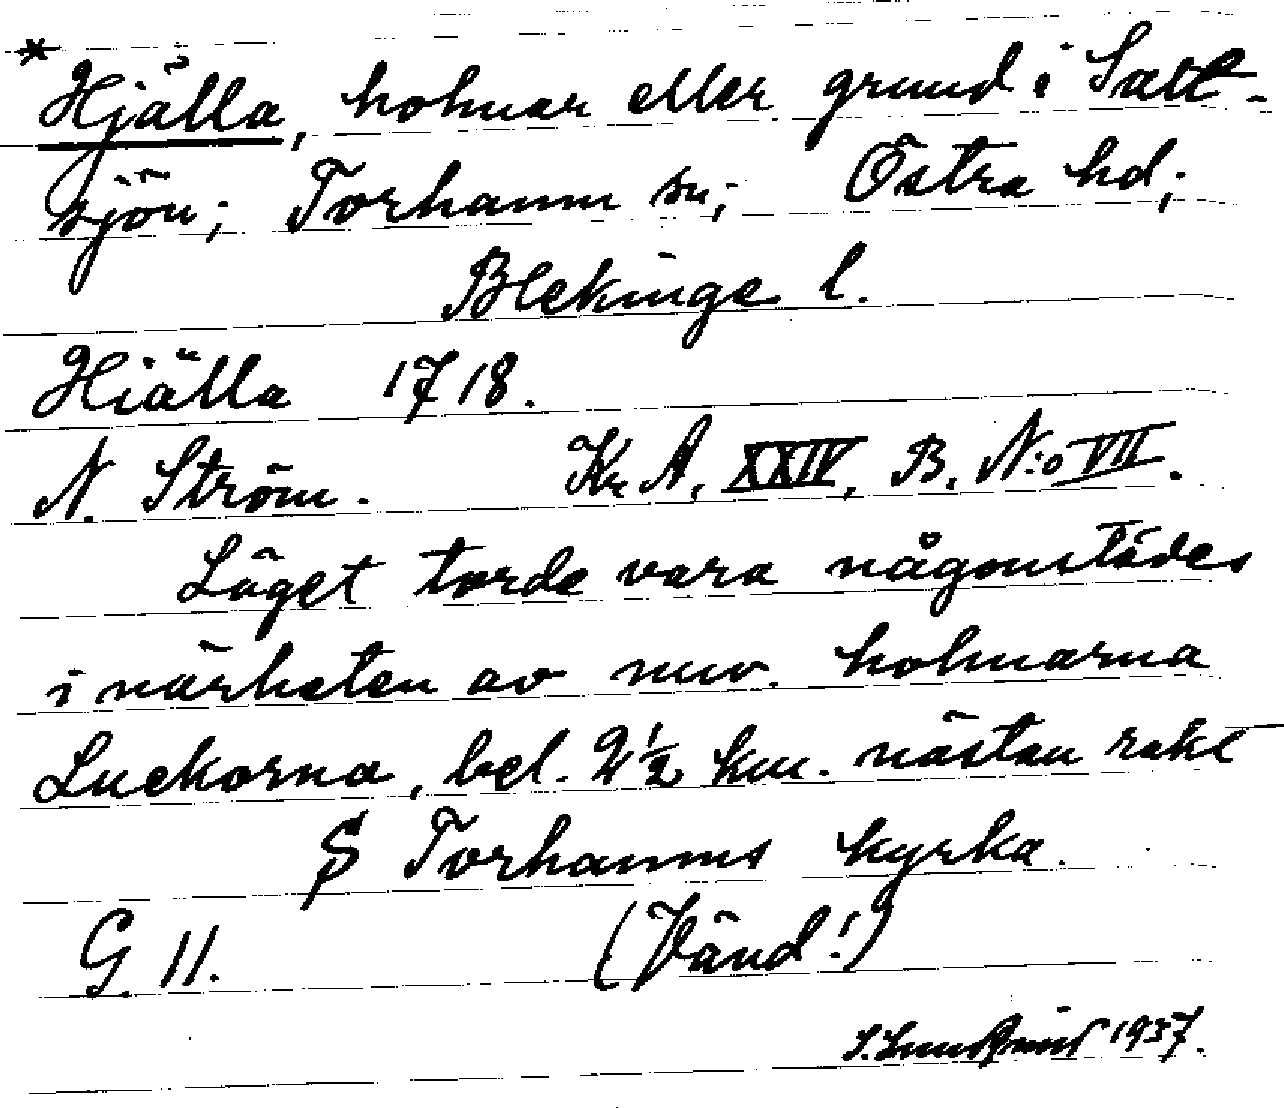 * Hjälla, holmar eller grund i Salt-
sjön; Torhamn sn; Östra hd;
Blekinge l.
Hiälla 1718.
N. Ström. Kr A, XXIV, B, N:o VII.
Läget torde vara någonstädes
i närheten av nuv. holmarna
Luckorna, bel. 2 1/2 km. nästan rakt
S Torhamns kyrka.
G. 11. (Vänd!)
1937.